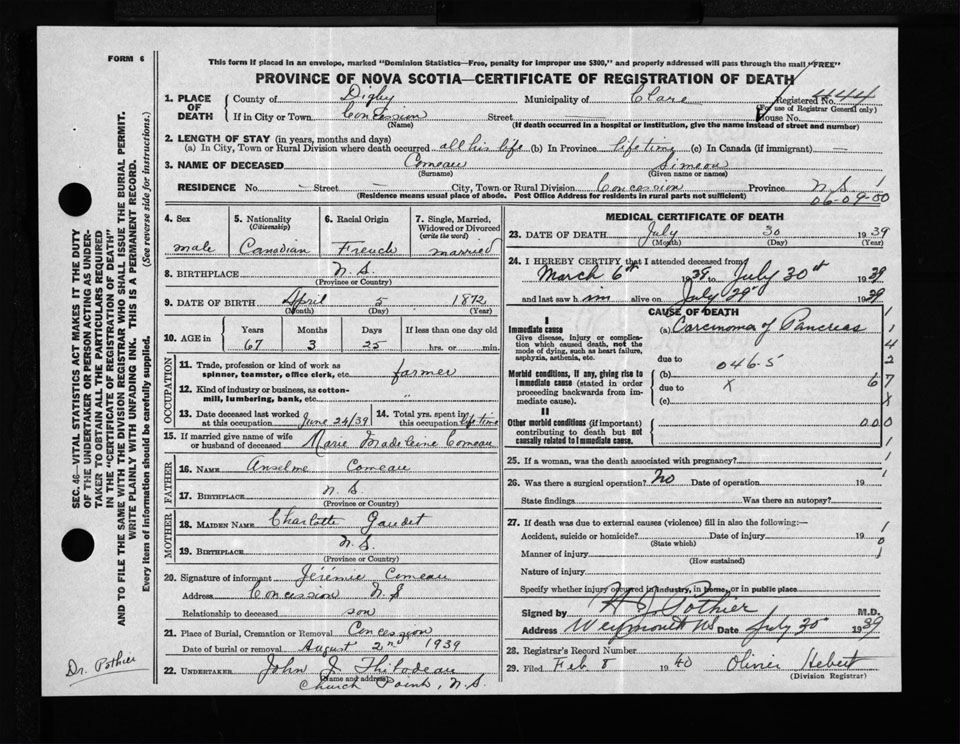 FORM 6
This form if placed in an envelope, marked "Dominion Statistics—Free, penalty for improper use $300," and properly addressed will pass through the mail "FREE"
PROVINCE OF NOVA SCOTIA—CERTIFICATE OF REGISTRATION OF DEATH
1. PLACE OF DEATH
County of Digby Municipality of Clare Registered No. 444
(For use of Registrar General only)
If in City or Town Concession Street House No.
(Name) (If death occurred in a hospital or institution, give the name instead of street and number)
2. LENGTH OF STAY (in years, months and days)
(a) In City, Town or Rural Division where death occurred all his life (b) In Province life time (c) In Canada (if immigrant) —
3. NAME OF DECEASED Comeau Simeon
(Surname) (Given name or names)
RESIDENCE No. — Street — City, Town or Rural Division Concession Province N.S. 1
(Residence means usual place of abode. Post Office Address for residents in rural parts not sufficient) 06-09-00
4. Sex male
5. Nationality (Citizenship) Canadian
6. Racial Origin French
7. Single, Married, Widowed or Divorced (write the word) married
8. BIRTHPLACE N.S.
(Province or Country)
9. DATE OF BIRTH April 5 1872
(Month) (Day) (Year)
10. AGE in Years Months Days If less than one day old
67 3 25 hrs. or min.
OCCUPATION
11. Trade, profession or kind of work as spinner, teamster, office clerk, etc. farmer
12. Kind of industry or business, as cotton-mill, lumbering, bank, etc. "
13. Date deceased last worked at this occupation June 24/39
14. Total yrs. spent in this occupation life time
15. If married give name of wife or husband of deceased Marie Madeleine Comeau
FATHER
16. NAME Anselme Comeau
17. BIRTHPLACE N.S.
(Province or Country)
MOTHER
18. MAIDEN NAME Charlotte Gaudet
19. BIRTHPLACE N.S.
(Province or Country)
20. Signature of informant Jérémie Comeau
Address Concession N.S
Relationship to deceased son
21. Place of Burial, Cremation or Removal Concession
Date of burial or removal August 2nd 1939
22. UNDERTAKER John J Thibodeau
(Name and address)
Church Point, N.S.
MEDICAL CERTIFICATE OF DEATH
23. DATE OF DEATH July 30 1939
(Month) (Day) (Year)
24. I HEREBY CERTIFY that I attended deceased from
March 6th 1939 to July 30th 1939
and last saw him alive on July 29th 1939
CAUSE OF DEATH
I
Immediate cause (a) Carcinoma of Pancreas
Give disease, injury or complication which caused death, not the mode of dying, such as heart failure, asphyxia, asthenia, etc.
due to
046-5
Morbid conditions, if any, giving rise to immediate cause (stated in order proceeding backwards from immediate cause).
(b)
due to X 67
(c)
II
Other morbid conditions (if important) contributing to death but not causally related to immediate cause. 000
1
1
4
2
X
1
25. If a woman, was the death associated with pregnancy? 1
26. Was there a surgical operation? No Date of operation 19 1
State findings Was there an autopsy?
27. If death was due to external causes (violence) fill in also the following:—
Accident, suicide or homicide? Date of injury 19
(State which)
Manner of injury
(How sustained)
Nature of injury
1
0
1
Specify whether injury occurred in industry, in home, or in public place
Signed by H J Pothier M.D.
Address Weymouth NS Date July 30th 1939
28. Registrar's Record Number
29. Filed Feb 8 1940 Olivier Hebert
(Division Registrar)
SEC. 46—VITAL STATISTICS ACT MAKES IT THE DUTY
OF THE UNDERTAKER OR PERSON ACTING AS UNDER-
TAKER TO OBTAIN ALL THE PARTICULARS REQUIRED
IN THE "CERTIFICATE OF REGISTRATION OF DEATH"
AND TO FILE THE SAME WITH THE DIVISION REGISTRAR WHO SHALL ISSUE THE BURIAL PERMIT.
WRITE PLAINLY WITH UNFADING INK. THIS IS A PERMANENT RECORD.
Every item of information should be carefully supplied. (See reverse side for instructions.)
Dr. Pothier